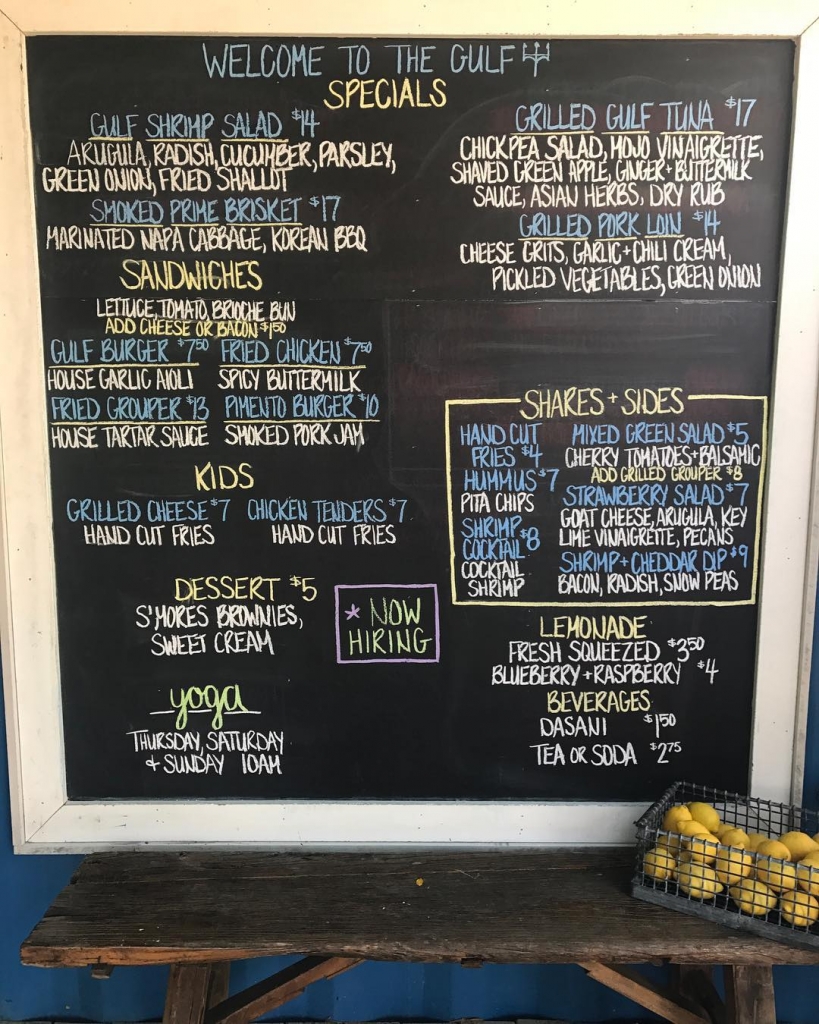 WELCOME TO THE GULF
SPECIALS
GULF SHRIMP SALAD $14
ARUGULA, RADISH, CUCUMBER, PARSLEY,
GREEN ONION, FRIED SHALLOT
SMOKED PRIME BRISKET $17
MARINATED NAPA CABBAGE, KOREAN BBQ
GRILLED GULF TUNA $17
CHICKPEA SALAD, MOJO VINAIGRETTE,
SHAVED GREEN APPLE, GINGER+BUTTERMILK
SAUCE, ASIAN HERBS, DRY RUB
GRILLED PORK LOIN $14
CHEESE GRITS, GARLIC+CHILI CREAM,
PICKLED VEGETABLES, GREEN ONION
SANDWICHES
LETTUCE, TOMATO, BRIOCHE BUN
ADD CHEESE OR BACON $1.50
GULF BURGER $7.50 FRIED CHICKEN $7.50
HOUSE GARLIC AIOLI SPICY BUTTERMILK
FRIED GROUPER $13 PIMENTO BURGER $10
HOUSE TARTAR SAUCE SMOKED PORK JAM
KIDS
GRILLED CHEESE $7 CHICKEN TENDERS $7
HAND CUT FRIES HAND CUT FRIES
DESSERT $5
S'MORES BROWNIES,
SWEET CREAM
* NOW
HIRING
yoga
THURSDAY, SATURDAY
+ SUNDAY 10AM
SHARES + SIDES
HAND CUT
FRIES $4
HUMMUS $7
PITA CHIPS
SHRIMP
COCKTAIL $8
COCKTAIL
SHRIMP
MIXED GREEN SALAD $5
CHERRY TOMATOES+BALSAMIC
ADD GRILLED GROUPER $8
STRAWBERRY SALAD $7
GOAT CHEESE, ARUGULA, KEY
LIME VINAIGRETTE, PECANS
SHRIMP+CHEDDAR DIP $9
BACON, RADISH, SNOW PEAS
LEMONADE
FRESH SQUEEZED $3.50
BLUEBERRY+RASPBERRY $4
BEVERAGES
DASANI $1.50
TEA OR SODA $2.75